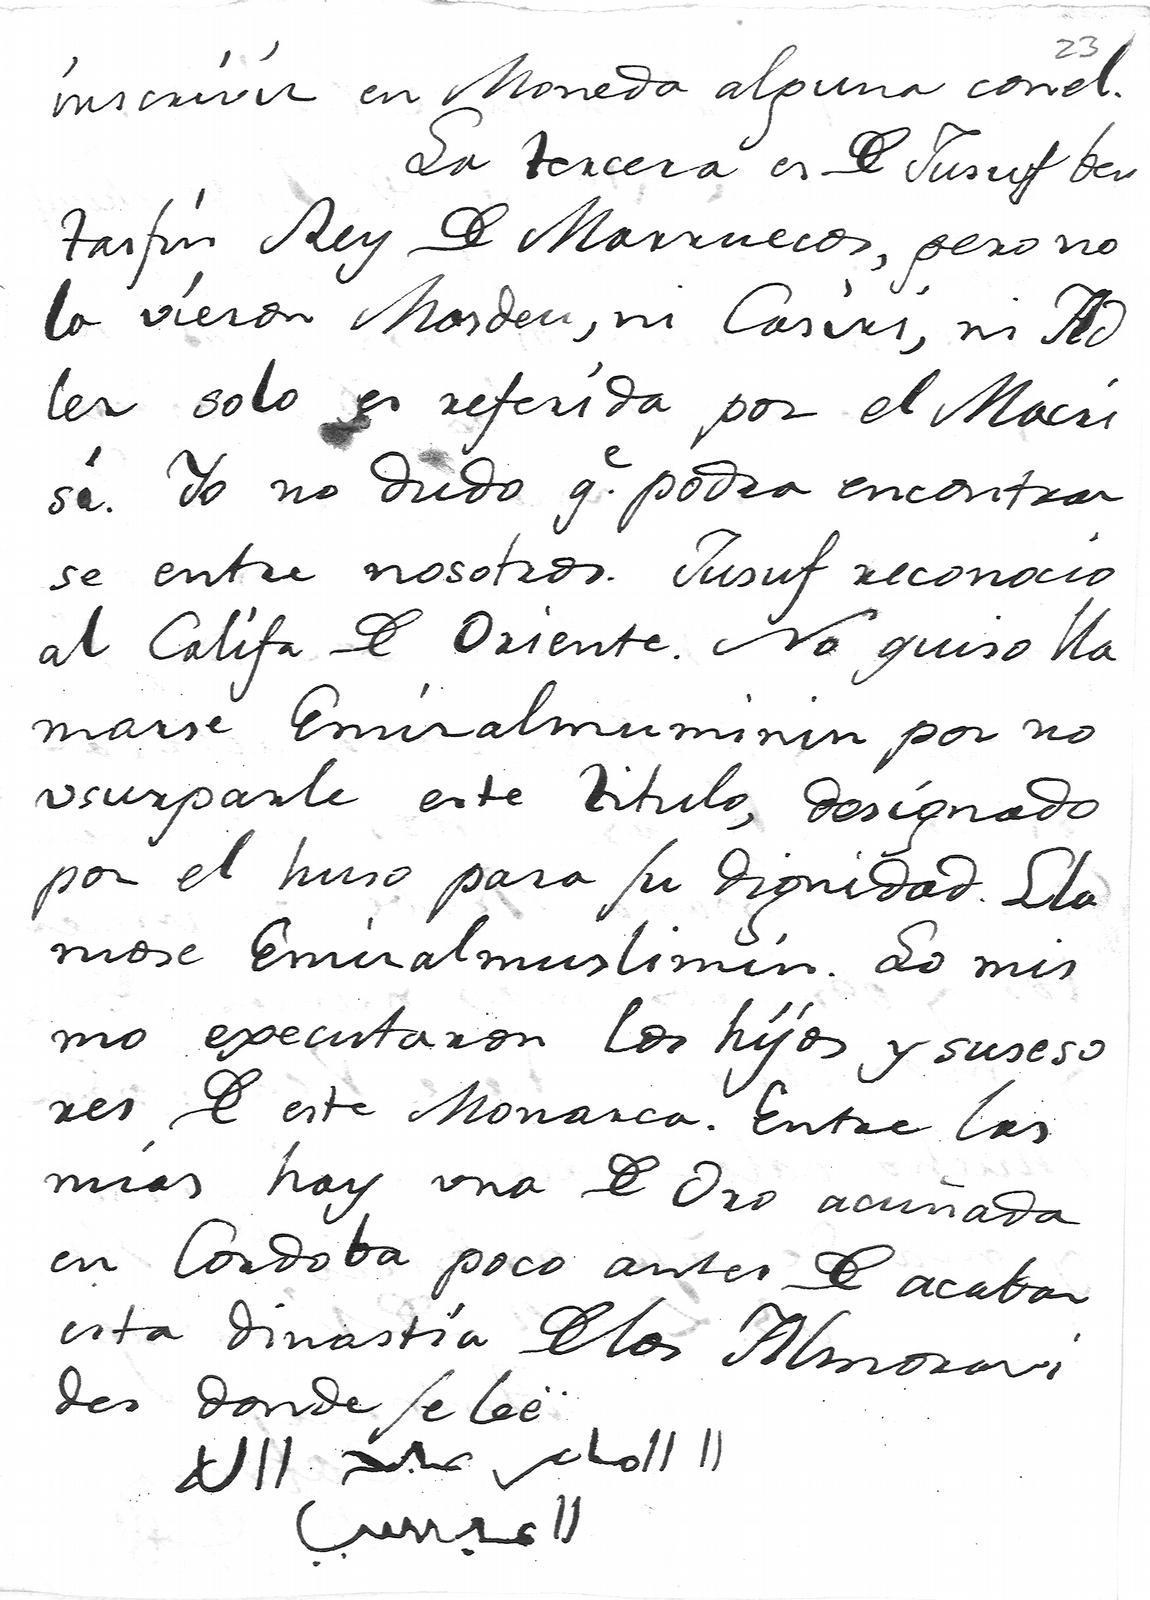 23
inscrivir en Moneda alguna con el.
La tercera es De Jusuf ben
tasfin Rey De Marruecos, pero no
la vieron Marsden, ni Casiri, ni Ad
ler solo es referida por el Macri
si. Yo no dudo q.e podra encontrar
se entre nosotros. Jusuf reconocio
al Califa De Oriente. No quiso lla
marse Emiralmuminin por no
usurparle este titulo, designado
por el huso para su dignidad. Lla
mose Emiralmuslimin. Lo mis
mo executaron los hijos y suseso
res De este Monarca. Entre las
mias hay una De Oro acuñada
en Cordoba poco antes De acabar
esta dinastia De los Almoravi
des donde se leë
الامام عبد الله